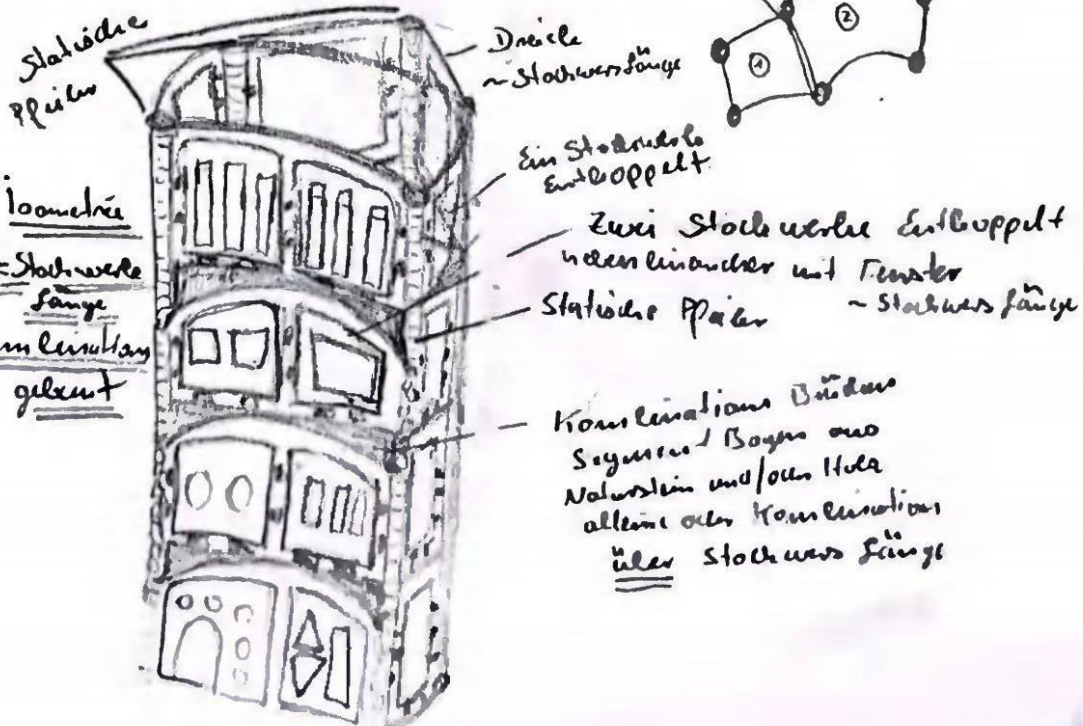 Statische
Pfeiler
Dreiele
~ Stockwerslänge
①
②
Ein Stockwerk
Entkoppelt
Isometrie
= Stockwerk
länge
gebaut
Zwei Stockwerke Entkoppelt
nebeneinander mit Fenster
~ Stockwerslänge
Statische Pfeiler
Kombinations
Segment Bogen aus
Naturstein und/oder Holz
alleine oder Kombination
über Stockwers länge